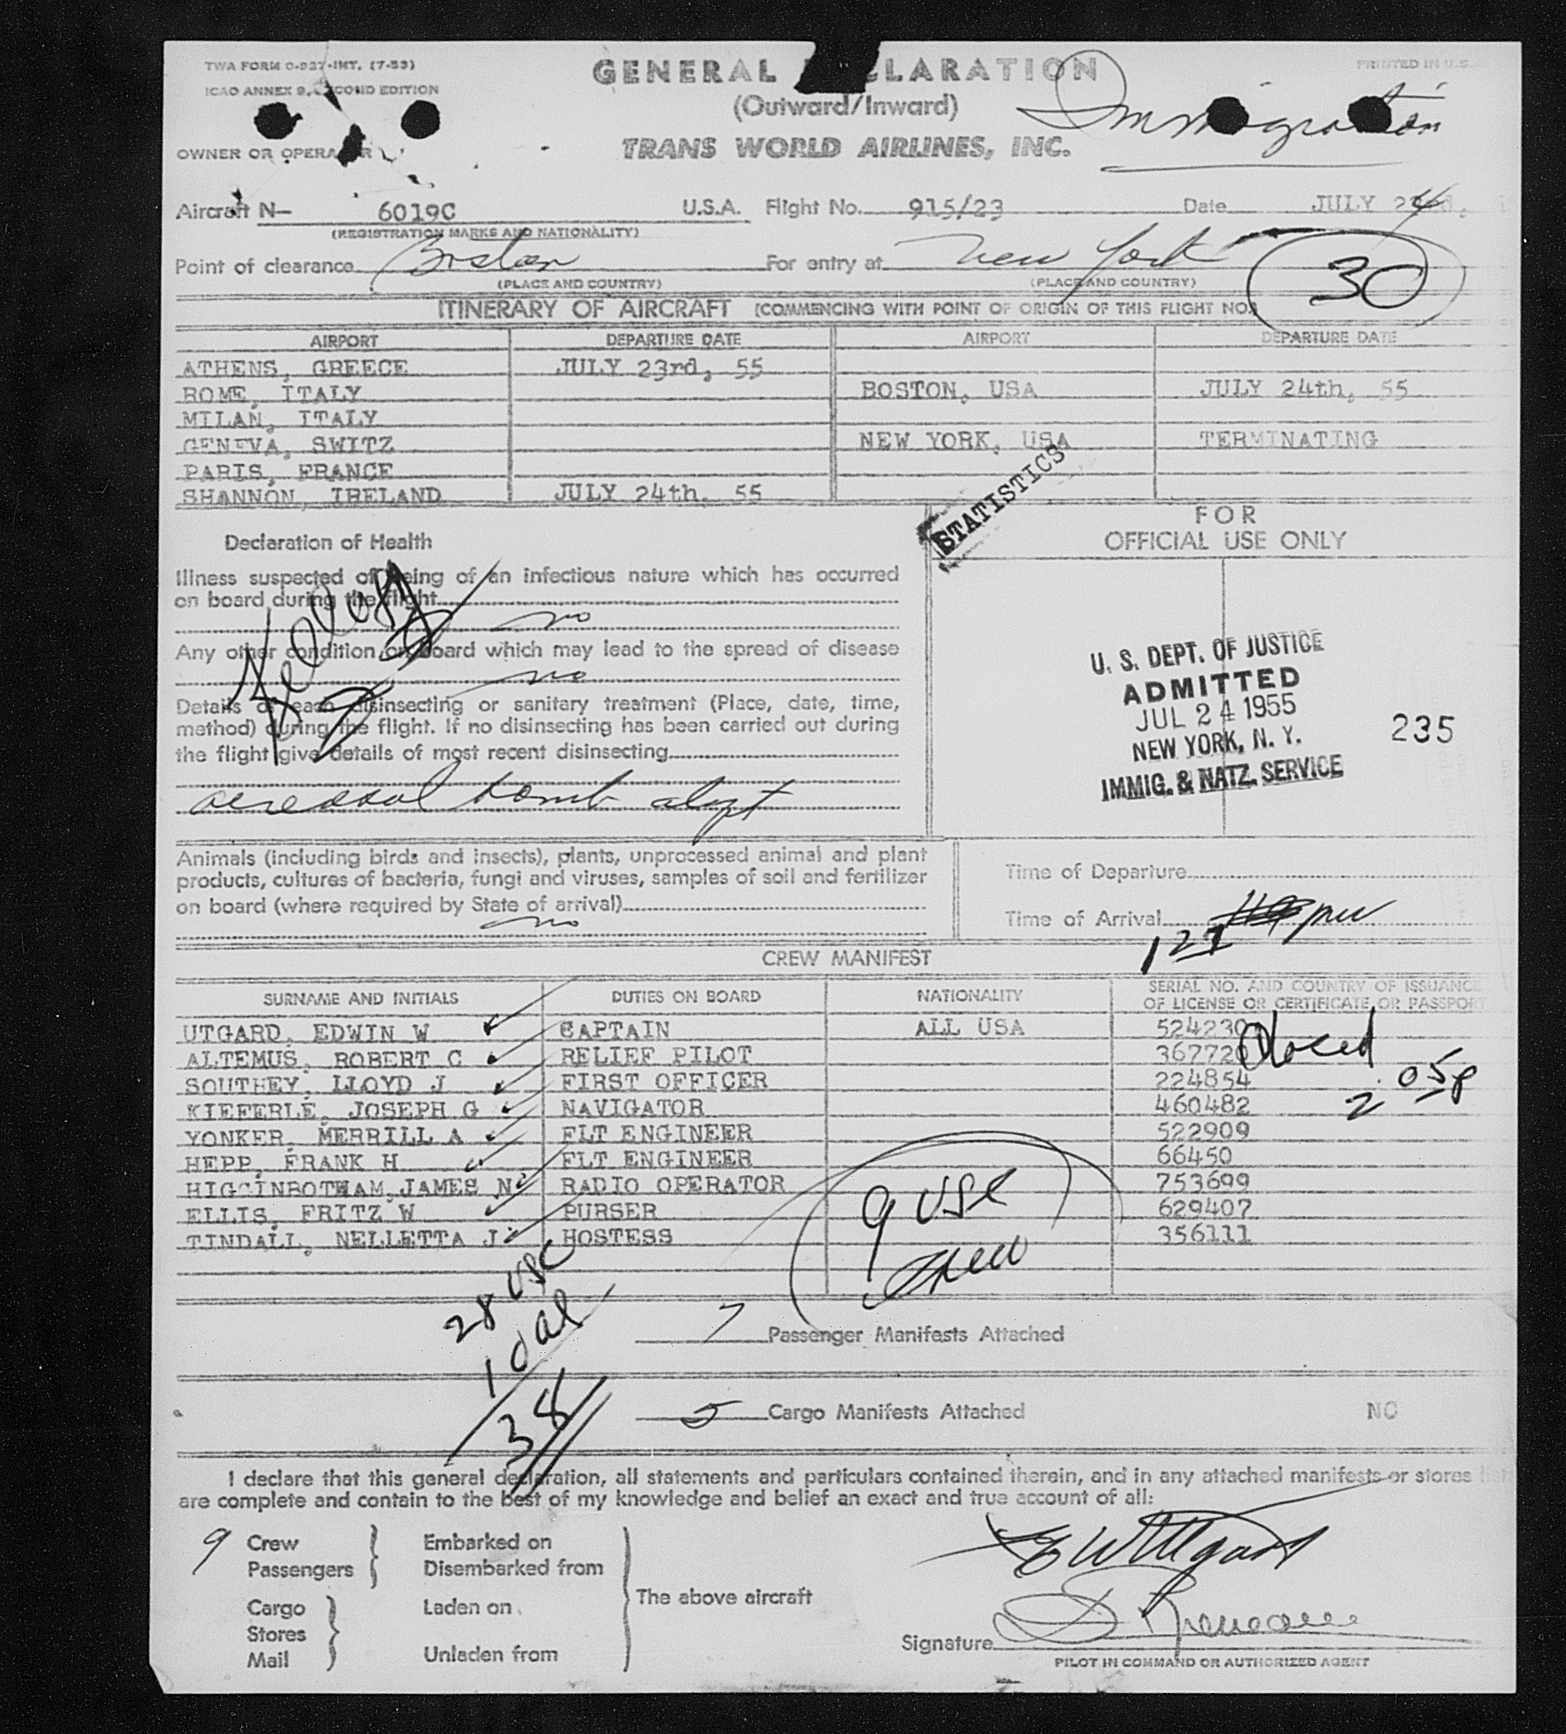 TWA FORM O-927-INT. (7-53)
GENERAL DECLARATION
PRINTED IN U.S.
ICAO ANNEX 9, SECOND EDITION
(Outward/Inward)
Immigration
OWNER OR OPERATOR
TRANS WORLD AIRLINES, INC.
Aircraft N— 6019C U.S.A. Flight No. 915/23 Date JULY 24
(REGISTRATION MARKS AND NATIONALITY)
Point of clearance Boston For entry at New York
(PLACE AND COUNTRY) (PLACE AND COUNTRY)
30
ITINERARY OF AIRCRAFT (COMMENCING WITH POINT OF ORIGIN OF THIS FLIGHT NO.)
AIRPORT DEPARTURE DATE AIRPORT DEPARTURE DATE
ATHENS, GREECE JULY 23rd, 55
ROME, ITALY BOSTON, USA JULY 24th, 55
MILAN, ITALY
GENEVA, SWITZ NEW YORK, USA TERMINATING
PARIS, FRANCE
SHANNON, IRELAND JULY 24th, 55
STATISTICS
FOR
OFFICIAL USE ONLY
Declaration of Health
Illness suspected of being of an infectious nature which has occurred
on board during the flight
no
Any other condition on board which may lead to the spread of disease
no
Details of each disinsecting or sanitary treatment (Place, date, time,
method) during the flight. If no disinsecting has been carried out during
the flight give details of most recent disinsecting
aereosol bomb
Kellogg
U. S. DEPT. OF JUSTICE
ADMITTED
JUL 24 1955
NEW YORK, N. Y.
IMMIG. & NATZ. SERVICE
235
Animals (including birds and insects), plants, unprocessed animal and plant
products, cultures of bacteria, fungi and viruses, samples of soil and fertilizer
on board (where required by State of arrival)
no
Time of Departure
Time of Arrival pm
121
CREW MANIFEST
SURNAME AND INITIALS DUTIES ON BOARD NATIONALITY SERIAL NO. AND COUNTRY OF ISSUANCE
OF LICENSE OR CERTIFICATE OR PASSPORT
UTGARD, EDWIN W CAPTAIN ALL USA 524230
ALTEMUS, ROBERT C RELIEF PILOT 367720
SOUTHEY, LLOYD J FIRST OFFICER 224854
KIEFERLE, JOSEPH G NAVIGATOR 460482
YONKER, MERRILL A FLT ENGINEER 522909
HEPP, FRANK H FLT ENGINEER 66450
HIGGINBOTHAM, JAMES N RADIO OPERATOR 753699
ELLIS, FRITZ W PURSER 629407
TINDALL, NELLETTA J HOSTESS 356111
closed
2:05p
9 USC
Crew
28 USC
1 al
38
7 Passenger Manifests Attached
5 Cargo Manifests Attached NO
I declare that this general declaration, all statements and particulars contained therein, and in any attached manifests or stores list
are complete and contain to the best of my knowledge and belief an exact and true account of all:
9 Crew Embarked on
Passengers Disembarked from
The above aircraft
Cargo Laden on
Stores
Mail Unladen from
E W Utgard
Signature
PILOT IN COMMAND OR AUTHORIZED AGENT